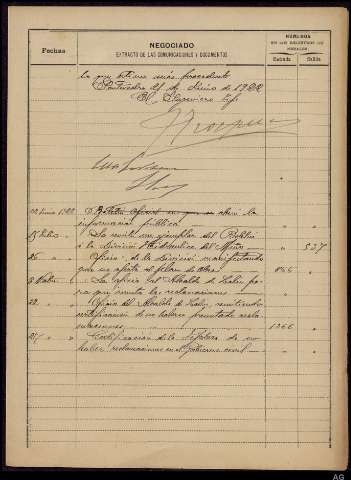 Fechas
NEGOCIADO
EXTRACTO DE LAS COMUNICACIONES Y DOCUMENTOS
NÚMEROS
EN LOS REGISTROS
Entrada Salida
lo que estime más procedente
Pontevedra 21 de Junio de 1922
El Ingeniero Jefe
22 Junio 1922 Boletín oficial en que se abre la
información pública
Se remite un ejemplar del Boletín
á la División Hidráulica del Miño 527
26 Oficio de la División manifestando
que no afecta al plan de obras
8 Se oficia al Alcalde de Lalín pa
ra que remita las reclamaciones
22 Oficio del Alcalde de Lalín, remitiendo
certificación de no haberse presentado recla
maciones 1266
25 Certificación de la Jefatura de no
haber reclamaciones en el Gobierno civil
AG